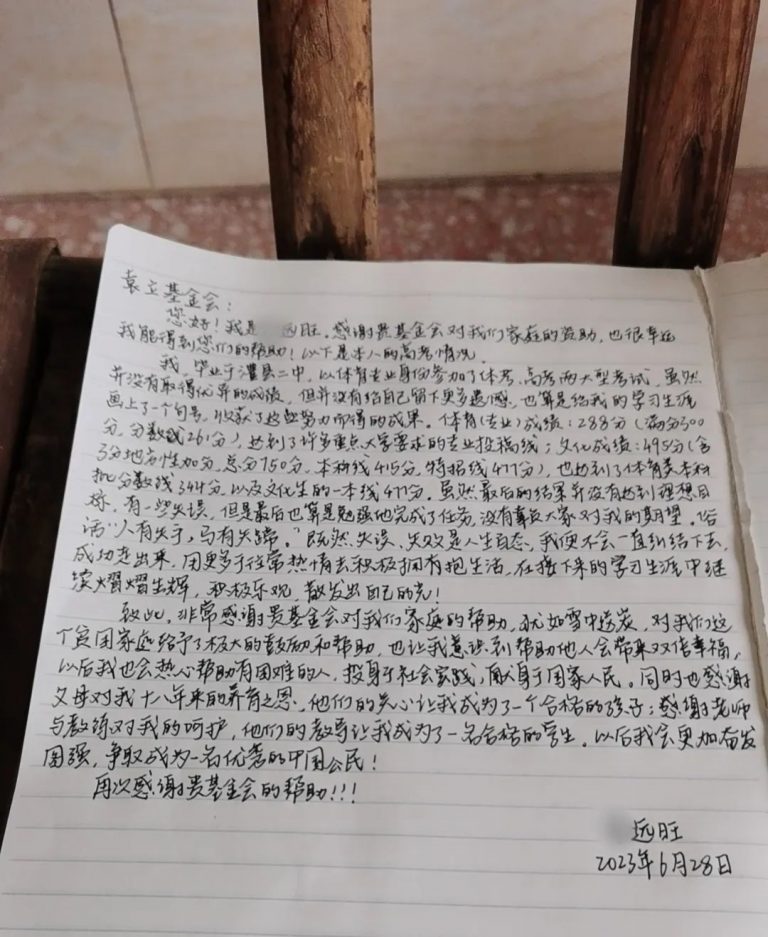 袁立基金会：
您好！我是 远旺。感谢贵基金会对我们家庭的资助，也很幸运
我能得到您们的帮助！以下是本人的高考情况。
我，毕业于灌县二中，以体育专业身份参加了体考、高考两大型考试，虽然
并没有取得优异的成绩，但并没有给自己留下更多遗憾，也算是给我的学习生涯
画上了一个句号，收获了这些努力而得的成果。体育(专业)成绩：288分（满分300
分，分数线261分），达到了许多重点大学要求的专业投档线；文化成绩：495分(含
3分地方性加分，总分750分，本科线415分，特招线477分)，也达到了体育类本科
批分数线344分，以及文化生的一本线477分。虽然最后的结果并没有达到理想目
标，有一些失误，但是最后也算是勉强地完成了任务，没有辜负大家对我的期望。俗
话"人有失手，马有失蹄。"既然失误、失败是人生百态，我便不会一直纠结下去，
成功走出来，用更多于往常热情去积极拥有抱生活，在接下来的学习生涯中继
续熠熠生辉，积极乐观，散发出自己的光！
致此，非常感谢贵基金会对我们家庭的帮助，犹如雪中送炭，对我们这
个贫困家庭给予了极大的鼓励和帮助，也让我意识到帮助他人会带来双倍幸福，
以后我也会热心帮助有困难的人，投身于社会实践，献身于国家人民。同时也感谢
父母对我十八年来的养育之恩，他们的关心让我成为了一个合格的孩子；感谢老师
与教练对我的呵护，他们的教导让我成为了一名合格的学生。以后我会更加奋发
图强，争取成为一名优秀的中国公民！
再次感谢贵基金会的帮助!!!
远旺
2023年6月28日